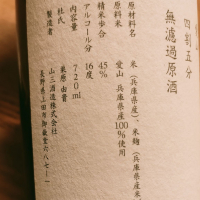 四割五分
無濾過原酒
原材料名 米(兵庫県産)、米麹(兵庫県産米)
原料米 愛山 兵庫県産100%使用
精米歩合 45%
アルコール分 16度
内容量 720ml
杜氏 栗原由貴
製造者 山三酒造株式会社
長野県上田市御嶽堂六八七-一